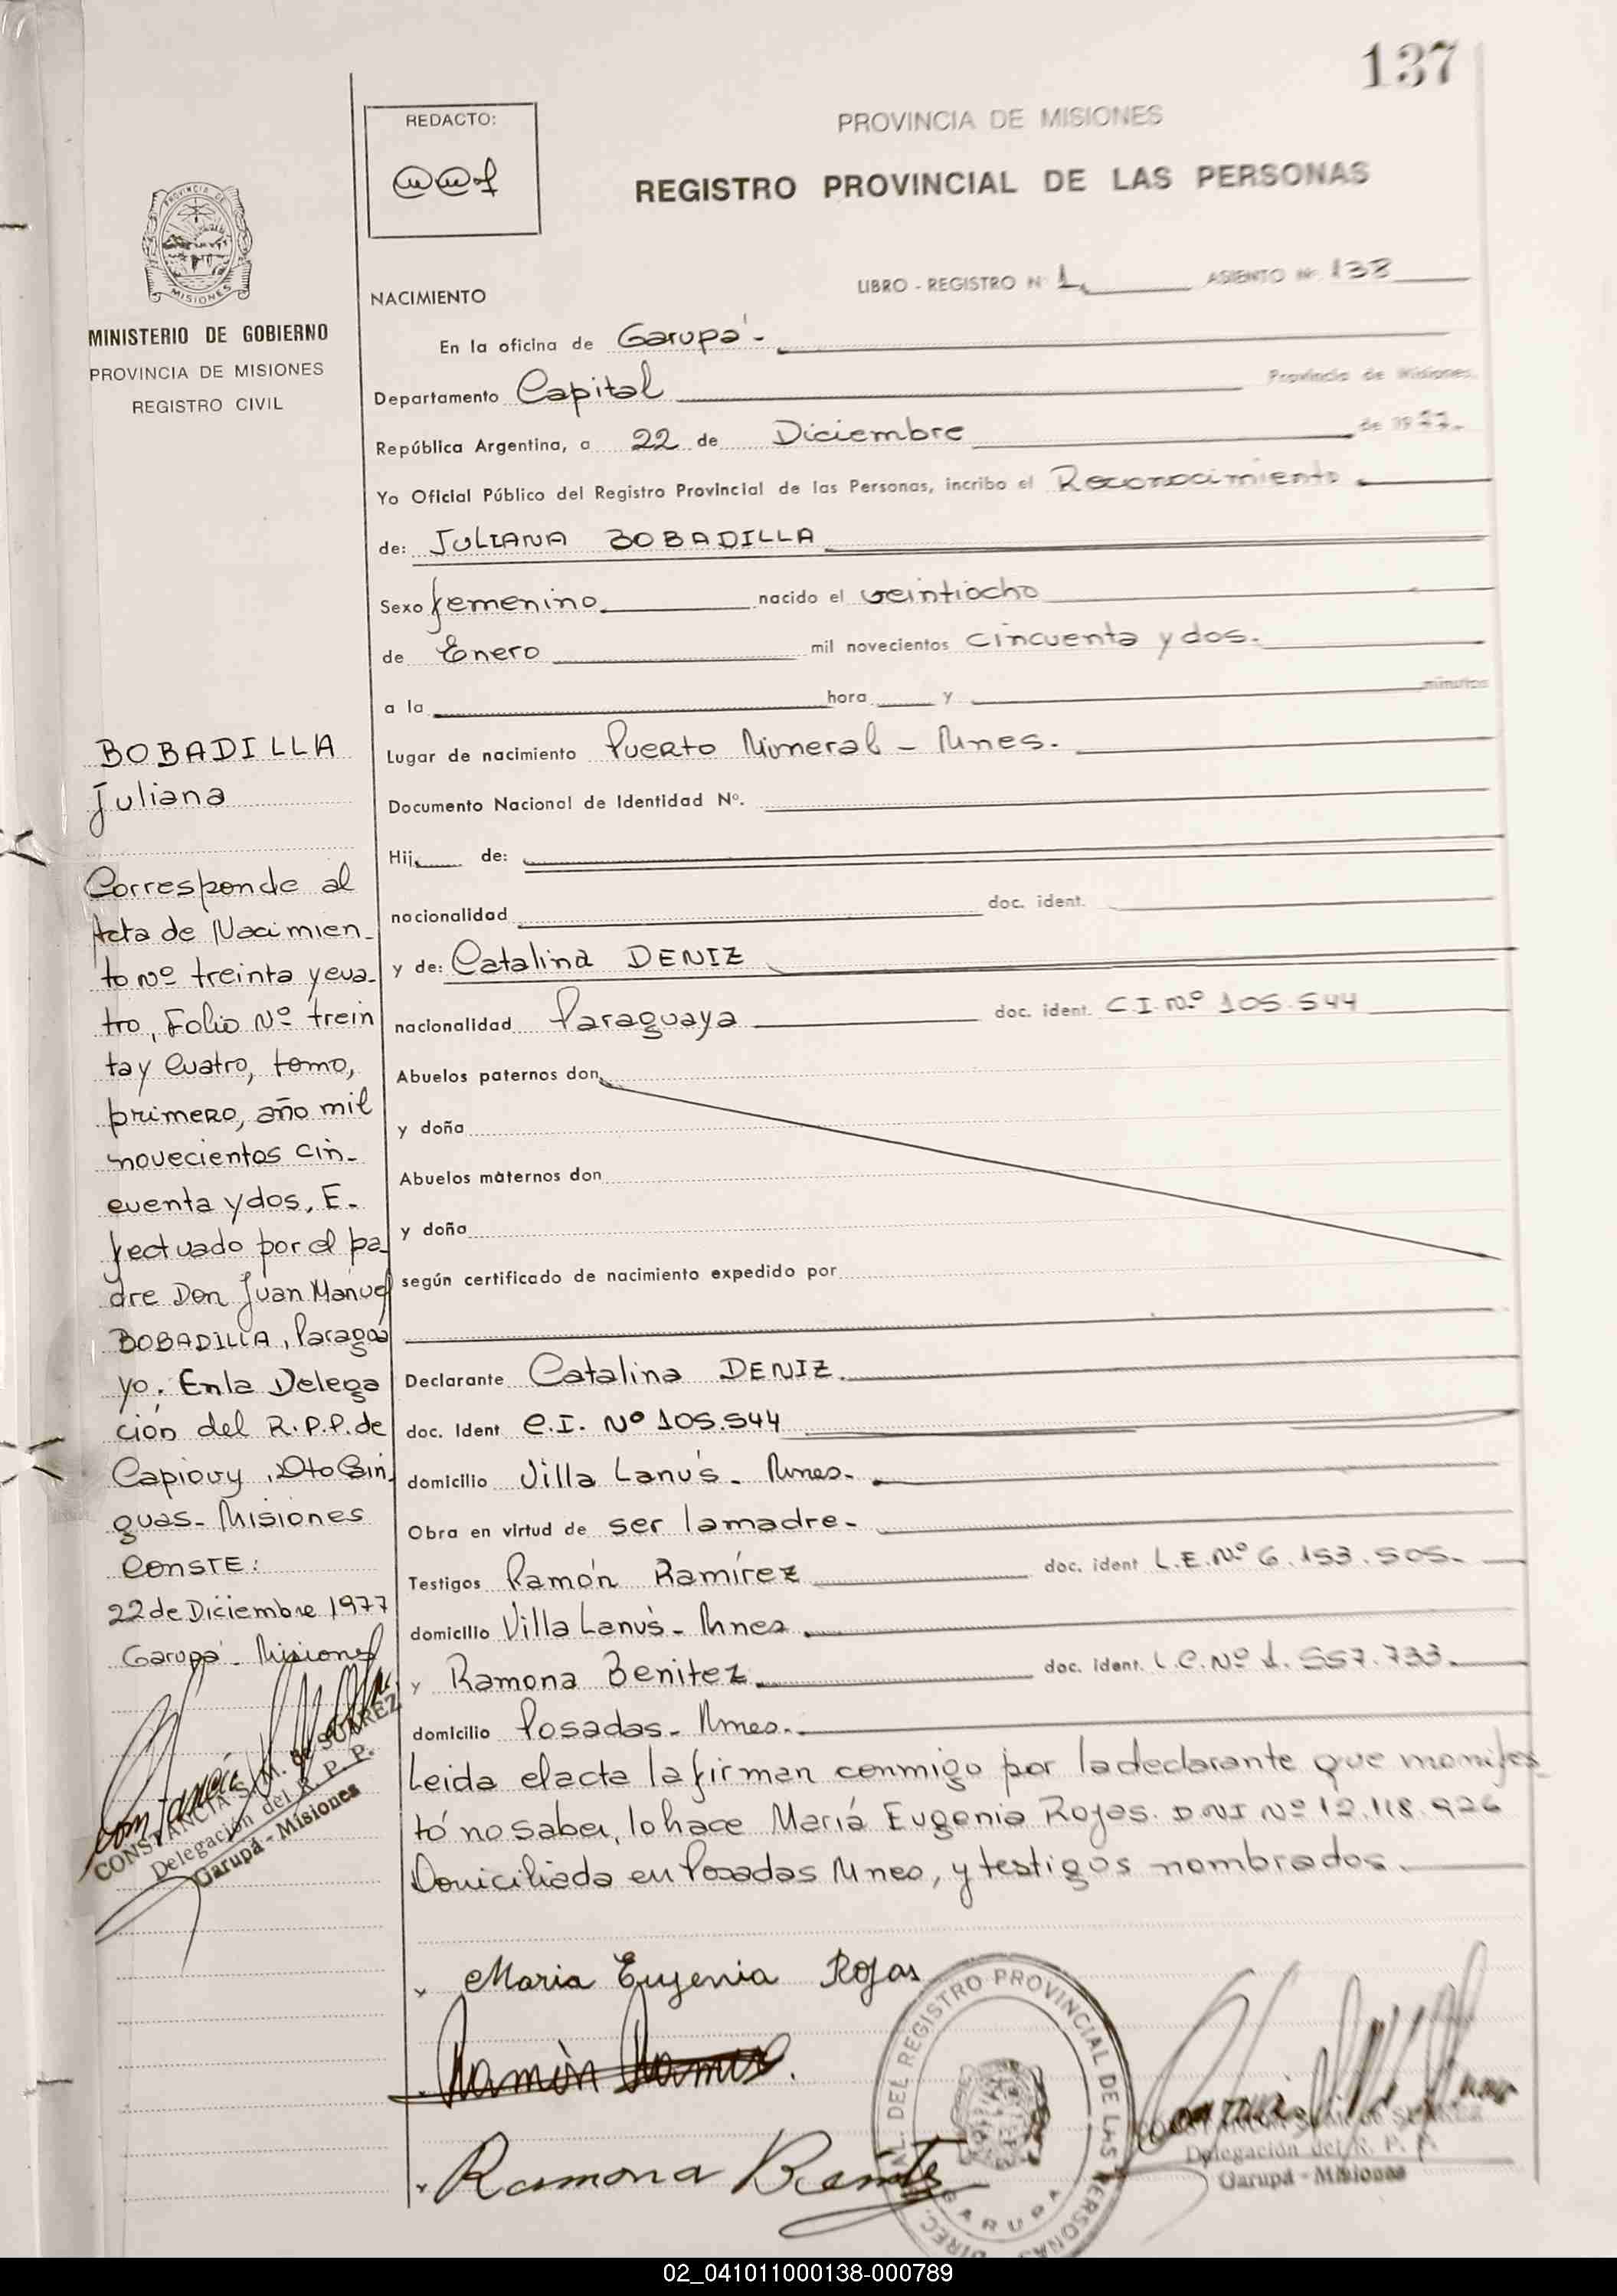 137
REDACTO:
PROVINCIA DE MISIONES
REGISTRO PROVINCIAL DE LAS PERSONAS
PROVINCIA DE
MISIONES
MINISTERIO DE GOBIERNO
PROVINCIA DE MISIONES
REGISTRO CIVIL
LIBRO - REGISTRO Nº 1 ASIENTO Nº 138
NACIMIENTO
En la oficina de Garupá -
Departamento Capital Provincia de Misiones,
República Argentina, a 22 de Diciembre de 1977.
Yo Oficial Público del Registro Provincial de las Personas, incribo el Reconocimiento
de: JULIANA BOBADILLA
Sexo femenino nacido el veintiocho
de Enero mil novecientos cincuenta y dos.
a la hora y minutos
Lugar de nacimiento Puerto Mineral - Mnes.
Documento Nacional de Identidad Nº.
Hij de:
nacionalidad doc. ident.
y de: Catalina DENIZ
nacionalidad Paraguaya doc. ident. C.I. Nº 105.544
Abuelos paternos don
y doña
Abuelos maternos don
y doña
según certificado de nacimiento expedido por
Declarante Catalina DENIZ.
doc. Ident C.I. Nº 105.544
domicilio Villa Lanús - Mnes.
Obra en virtud de ser la madre -
Testigos Ramón Ramírez doc. ident L.E. Nº 6.153.505.
domicilio Villa Lanús - Mnes
y Ramona Benitez doc. ident. L.C. Nº 1.557.733.
domicilio Posadas - Mnes.
Leida el acta la firman conmigo por la declarante que manifes
tó no saber, lo hace Mariá Eugenia Rojas. D.N.I Nº 12.118.926
Domiciliada en Posadas Mnes, y testigos nombrados.
BOBADILLA
Juliana
Corresponde al
Acta de Nacimien-
to Nº treinta y cua-
tro, Folio Nº trein
ta y Cuatro, tomo,
primero, año mil
novecientos cin-
cuenta y dos, E-
fectuado por el pa-
dre Don Juan Manuel
BOBADILLA, Paragua
yo. En la Delega
ción del R.P.P. de
Capiovy, Dto Cain
guas - Misiones
CONSTE:
22 de Diciembre 1977
Garupá - Misiones
CONSTANCIA S. M. de SUAREZ
Delegación del R. P. P.
Garupá - Misiones
Maria Eugenia Rojas
Ramón Ramirez
Ramona Benitez
DEL REGISTRO PROVINCIAL DE LAS PERSONAS
GARUPA
Delegación del R. P. P.
Garupá - Misiones
02_041011000138-000789